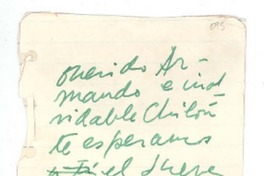 095
Querido Ar-
mando e inol
vidable Chilón
te esperamos
a Ti el Jueve